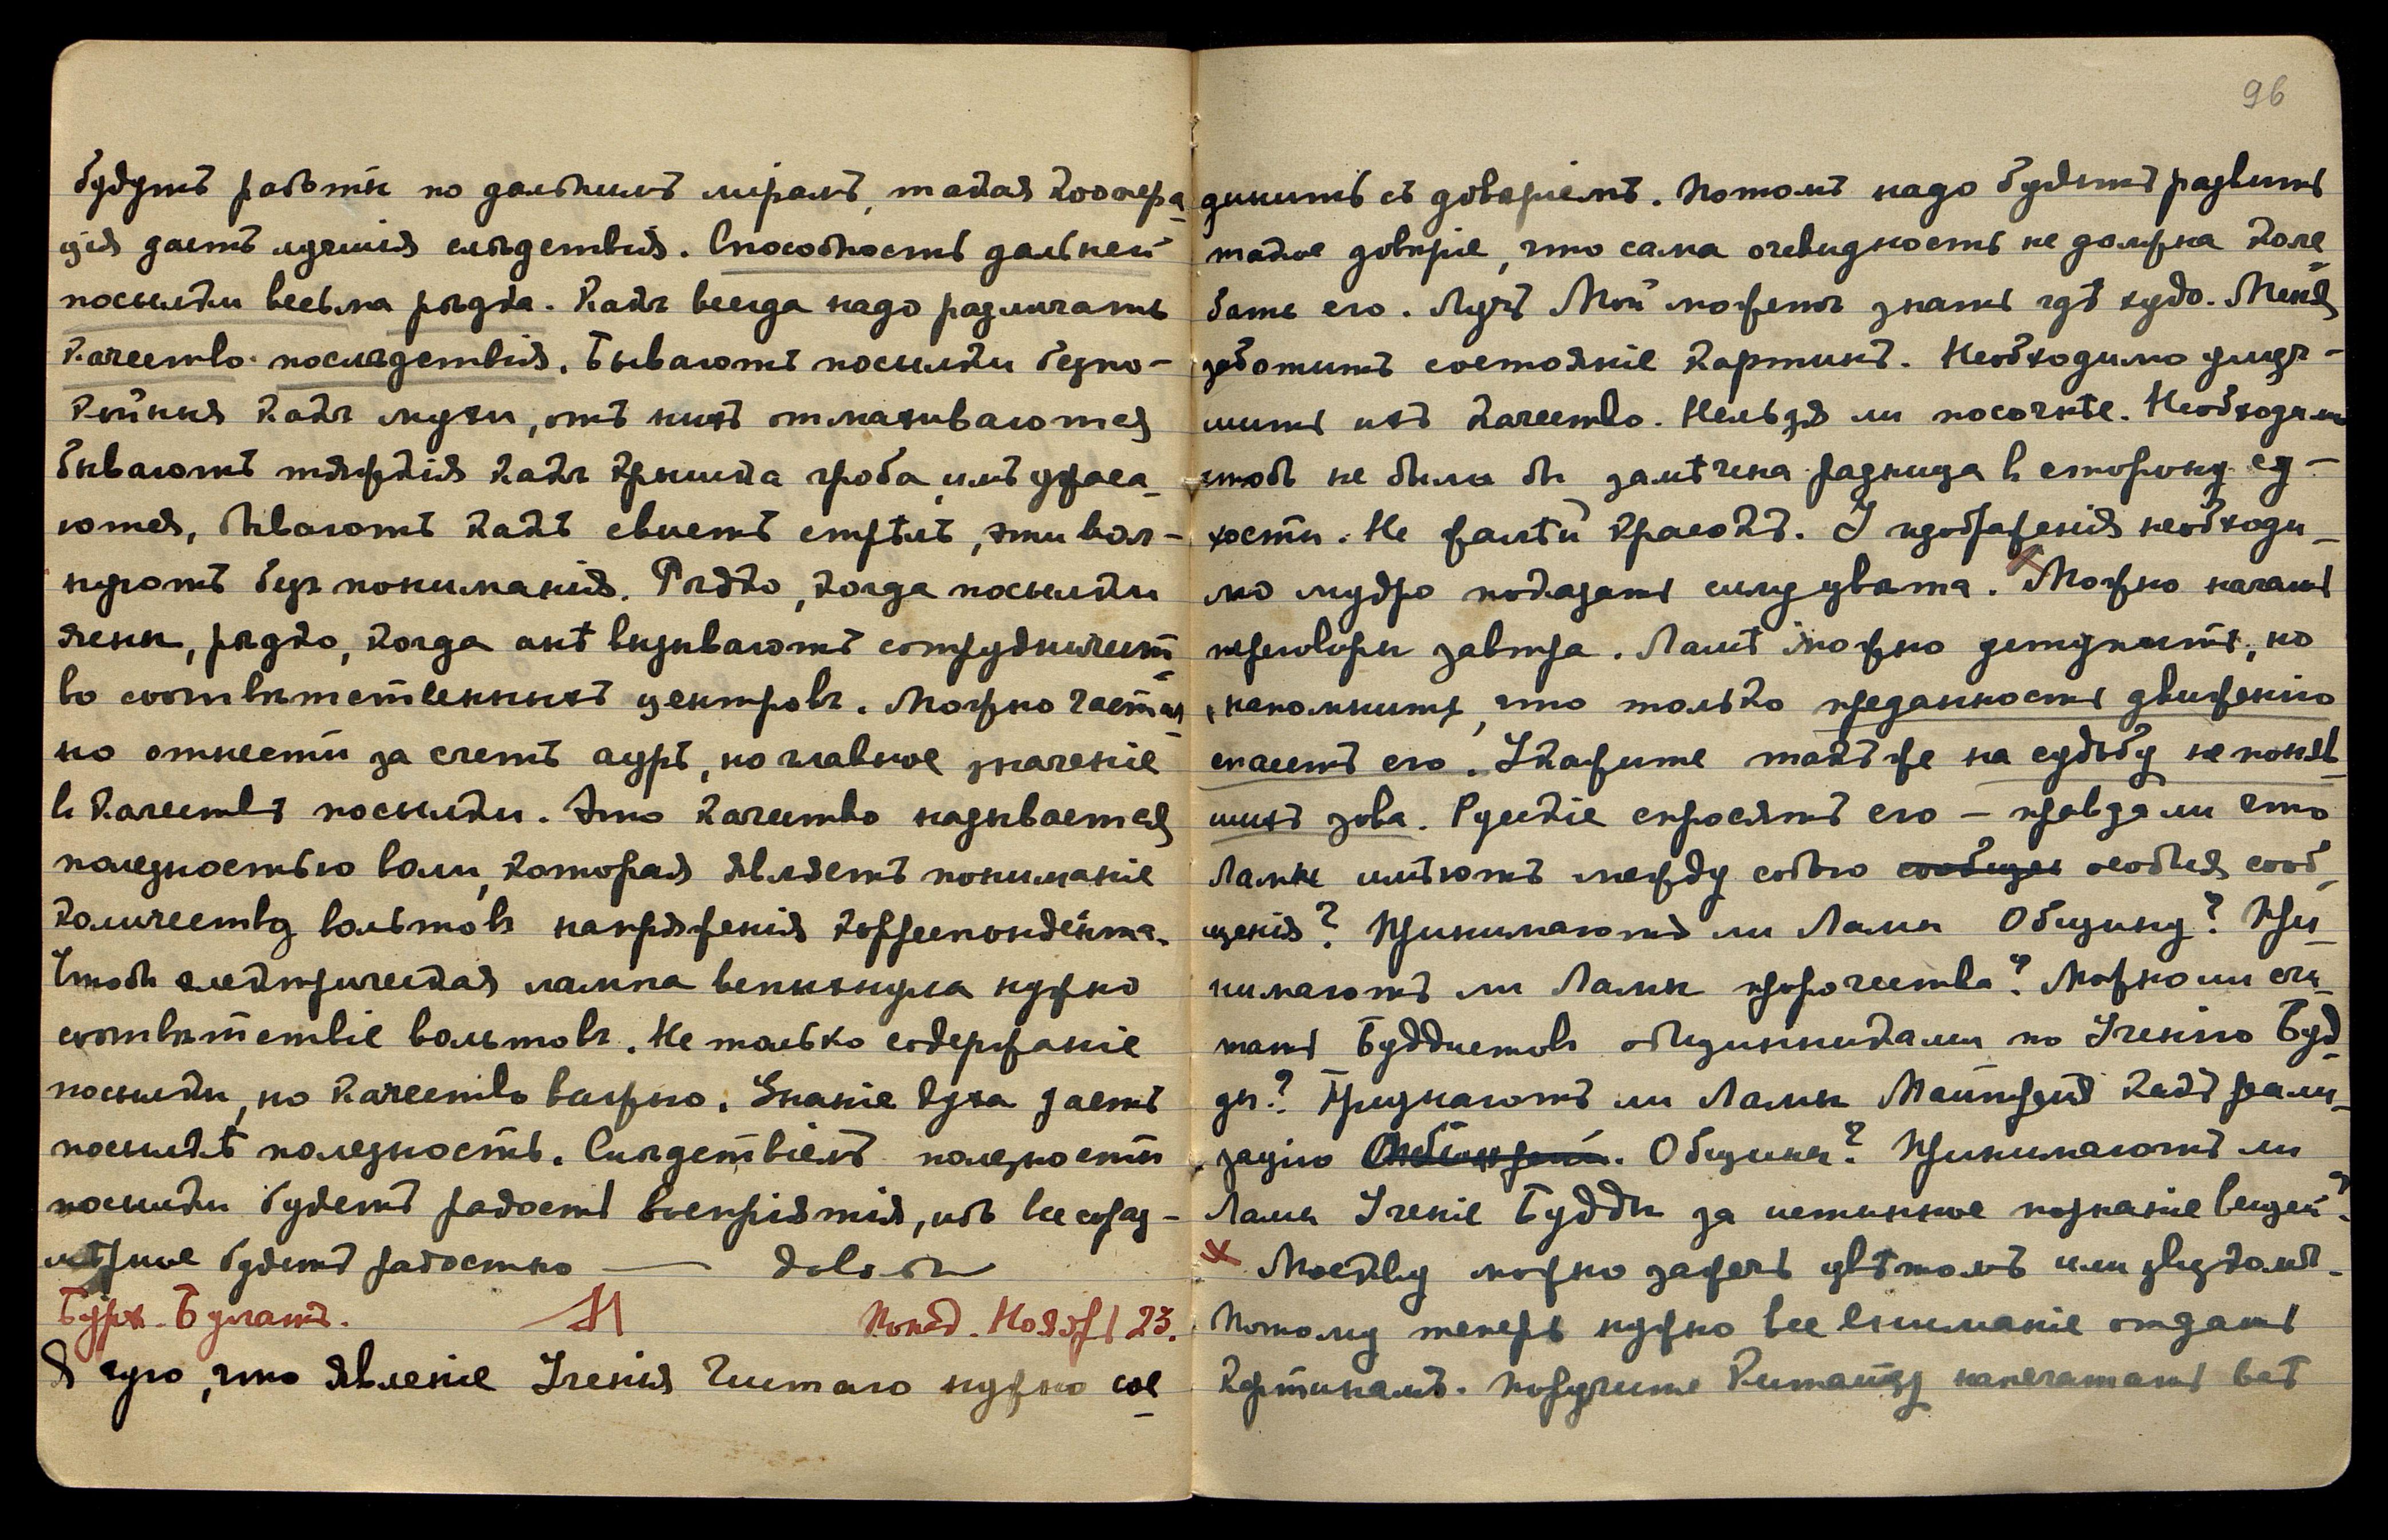 будутъ работы по дальнимъ мірамъ, такая коопера-
ція даетъ лучшія слѣдствія. Способность дальней
посылки весьма рѣдка. Какъ всегда надо различать
качество послѣдствія. Бываютъ посылки безпо-
койныя какъ мухи, отъ нихъ отмахиваются
бываютъ тяжкія какъ крышка гроба, имъ ужаса-
ются, бываютъ какъ свистъ стрѣлъ, эти вол-
нуютъ безъ пониманія. Рѣдко, когда посылки
ясны, рѣдко, когда онѣ вызываютъ сотрудничест-
во соотвѣтственныхъ центровъ. Можно частич-
но отнести за счетъ ауръ, но главное значеніе
въ качествѣ посылки. Это качество называется
полезностью воли, которая являетъ пониманіе
количества вольтовъ напряженія корреспондента.
Чтобы электрическая лампа вспыхнула нужно
соотвѣтствіе вольтовъ. Не только содержаніе
посылки, но качество важно. Знаніе духа даетъ
посылкѣ полезность. Слѣдствіемъ полезности
посылки будетъ радость воспріятія, ибо все сораз-
мѣрное будетъ радостно — довольно
Бурх. Булатъ. Понед. Ноябрь 23.
Я чую, что явленіе Ученія Чистаго нужно сое-
96
динить съ довѣріемъ. Потомъ надо будетъ развить
такое довѣріе, что сама очевидность не должна коле-
бать его. Лучъ Мой можетъ знать гдѣ худо. Меня
заботитъ состояніе картинъ. Необходимо улуч-
шить ихъ качество. Нельзя ли посочнѣе. Необходимо
чтобъ не была бы замѣчена разница въ сторону су-
хости. Не жалѣй красокъ. И изображенія необходи-
мо мудро показать силу цвѣта. Можно начать
переговоры завтра. Ламѣ можно уступить, но
напомнить, что только преданность движенію
спасетъ его. Укажите также на судьбу не поняв-
шихъ зова. Русскіе спросятъ его — правда ли что
Ламы имѣютъ между собою особыя сооб-
щенія? Принимаютъ ли Ламы Общину? При-
нимаютъ ли Ламы пророчества? Можно ли счи-
тать Буддистовъ общинниками по Ученію Буд-
ды? Признаютъ ли Ламы Майтрейя какъ реали-
зацію Общины? Принимаютъ ли
Ламы Ученіе Будды за истинное познаніе вещей?
x Москву можно зажечь цвѣтомъ или звукомъ.
Потому теперь нужно все вниманіе отдать
Картинамъ. Поручите Китайцу напечатать всѣ